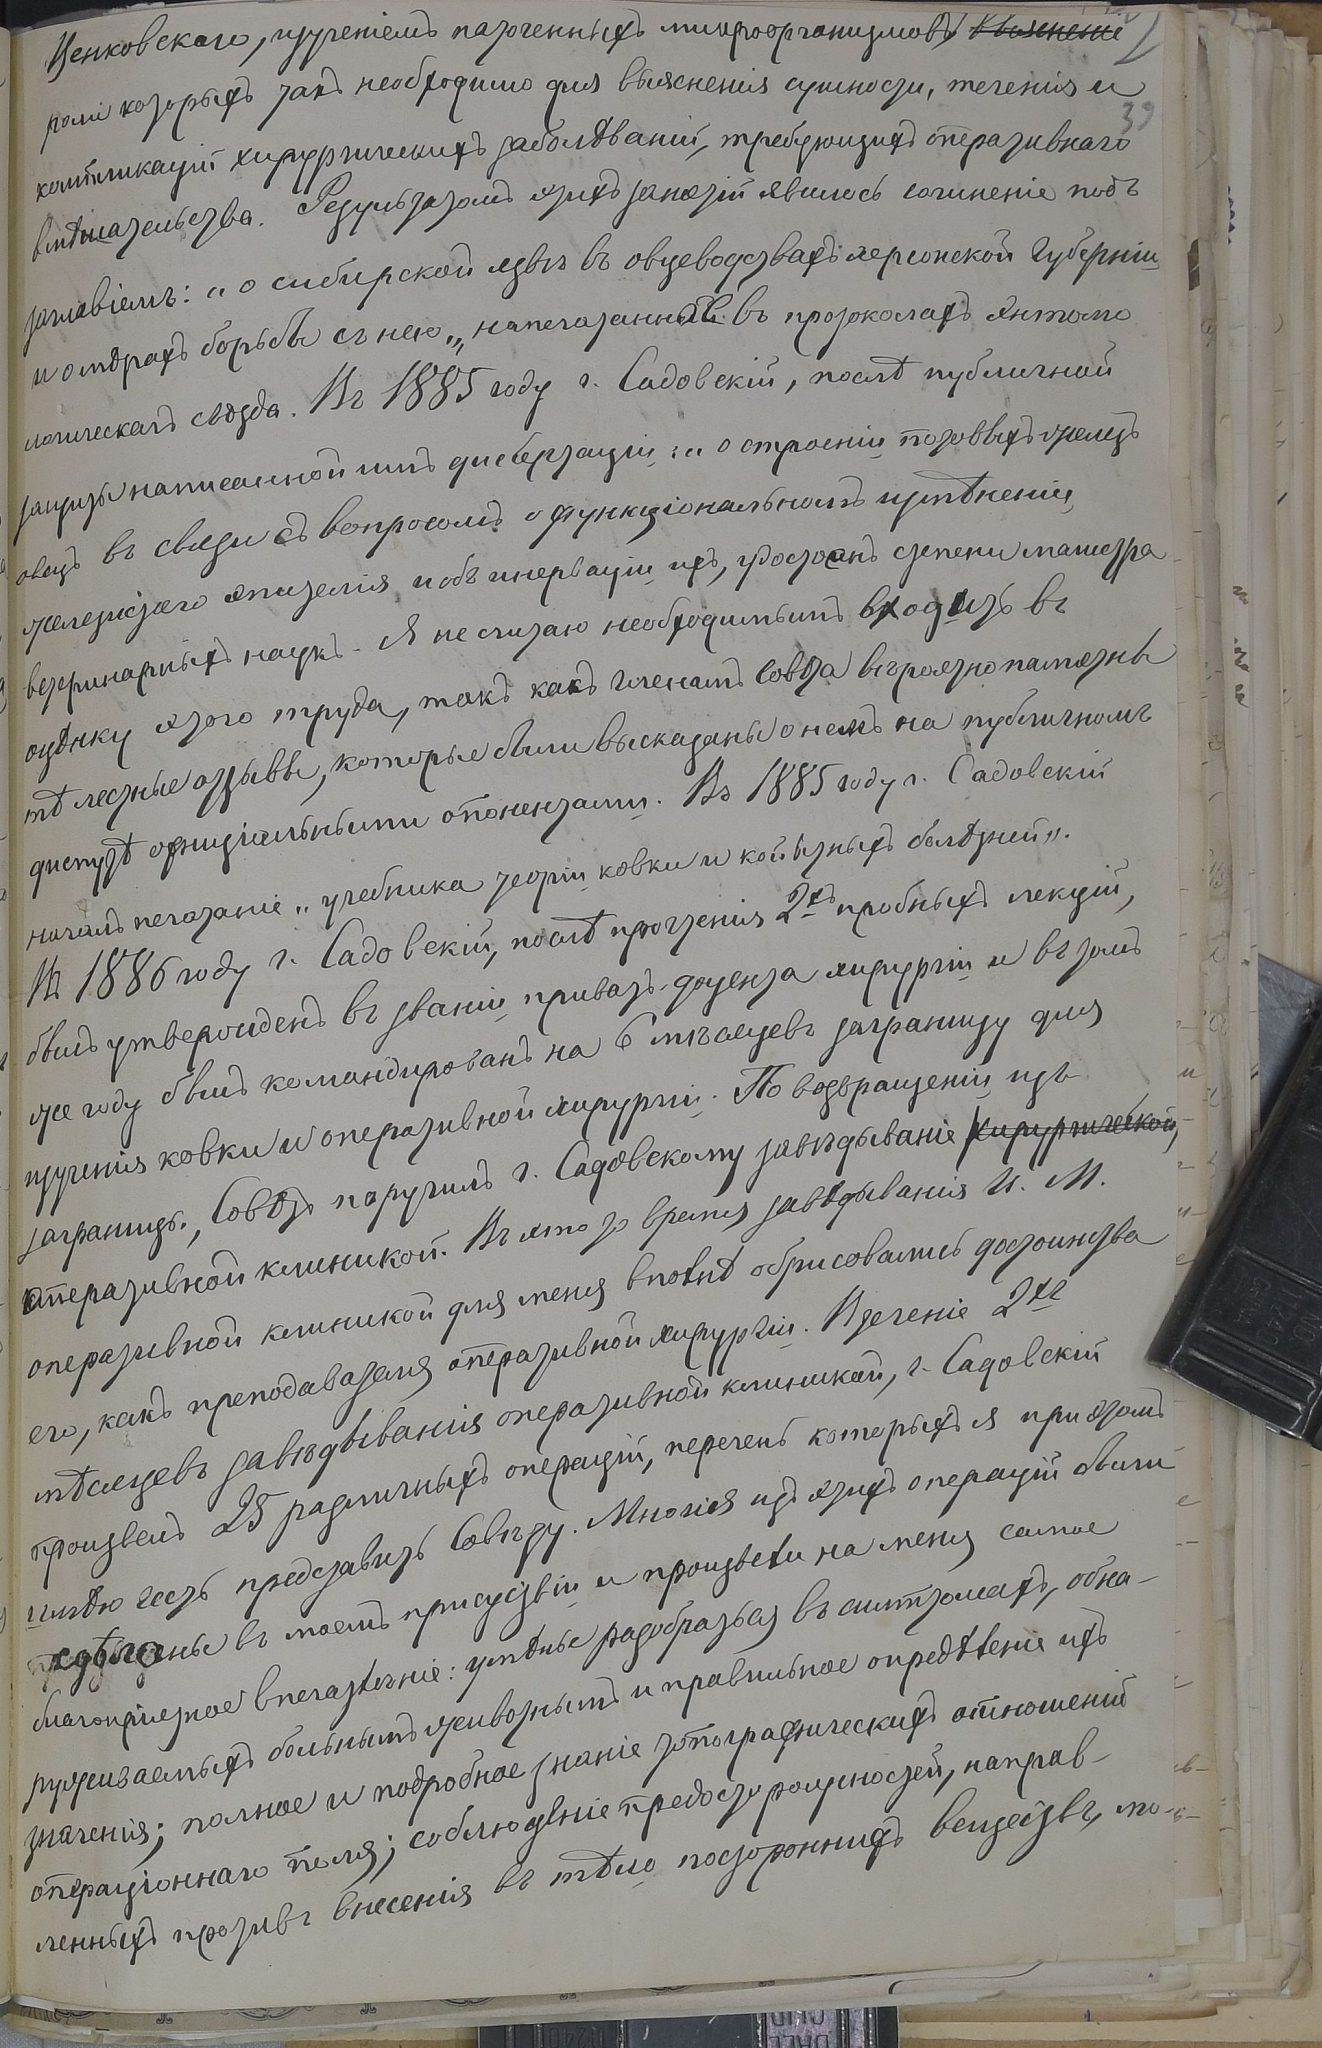 Ценковскаго, изученіемъ патогенныхъ микроорганизмовъ, выясненіе
39
роли которыхъ такъ необходимо для выясненія сущности, теченія и
компликацій хирургическихъ заболѣваній, требующихъ оперативнаго
вмѣшательства. Результатомъ этихъ занятій явилось сочиненіе подъ
заглавіемъ: „о сибирской язвѣ въ овцеводствахъ херсонской губерніи
и о мѣрахъ борьбы съ нею„, напечатанное въ протоколахъ Энтомо
логическаго съѣзда. Въ 1885 году г. Садовскій, послѣ публичной
защиты написанной имъ диссертаціи: „о строеніи потовыхъ железъ
овецъ въ связи съ вопросомъ о функціональномъ измѣненіи
железистаго эпителія и объ инерваціи ихъ, удостоенъ степени магистра
ветеринарныхъ наукъ. Я не считаю необходимымъ входить въ
оцѣнку этого труда, такъ какъ членамъ Совѣта вѣроятно памятны
тѣ лестные отзывы, которые были высказаны о немъ на публичномъ
диспутѣ офиціальными опонентами. Въ 1885 году г. Садовскій
началъ печатаніе „учебника теоріи ковки и копытныхъ болѣзней„.
Въ 1886 году г. Садовскій, послѣ прочтенія 2хъ пробныхъ лекцій,
былъ утвержденъ въ званіи приватъ-доцента хирургіи и въ томъ
же году былъ командированъ на 6 мѣсяцевъ заграницу для
изученія ковки и оперативной хирургіи. По возвращеніи изъ
заграницы, Совѣтъ поручилъ г. Садовскому завѣдываніе хирургической,
оперативной клиникой. Въ это то время завѣдыванія И. М.
оперативной клиникой для меня вполнѣ обрисовались достоинства
его, какъ преподавателя оперативной хирургіи. Втеченіе 2хъ
мѣсяцевъ завѣдыванія оперативной клиникой, г. Садовскій
произвелъ 25 различныхъ операцій, перечень которыхъ я при этомъ
имѣю честь представить Совѣту. Многія изъ этихъ операцій были
сдѣланы въ моемъ присутствіи и произвели на меня самое
благопріятное впечатлѣніе: умѣнье разобраться въ симптомахъ, обна-
руживаемыхъ больнымъ животнымъ и правильное опредѣленіе ихъ
значенія; полное и подробное знаніе топографическихъ отношеній
операціоннаго поля; соблюденіе предосторожностей, направ-
ленныхъ противъ внесенія въ тѣло постороннихъ веществъ, мо-